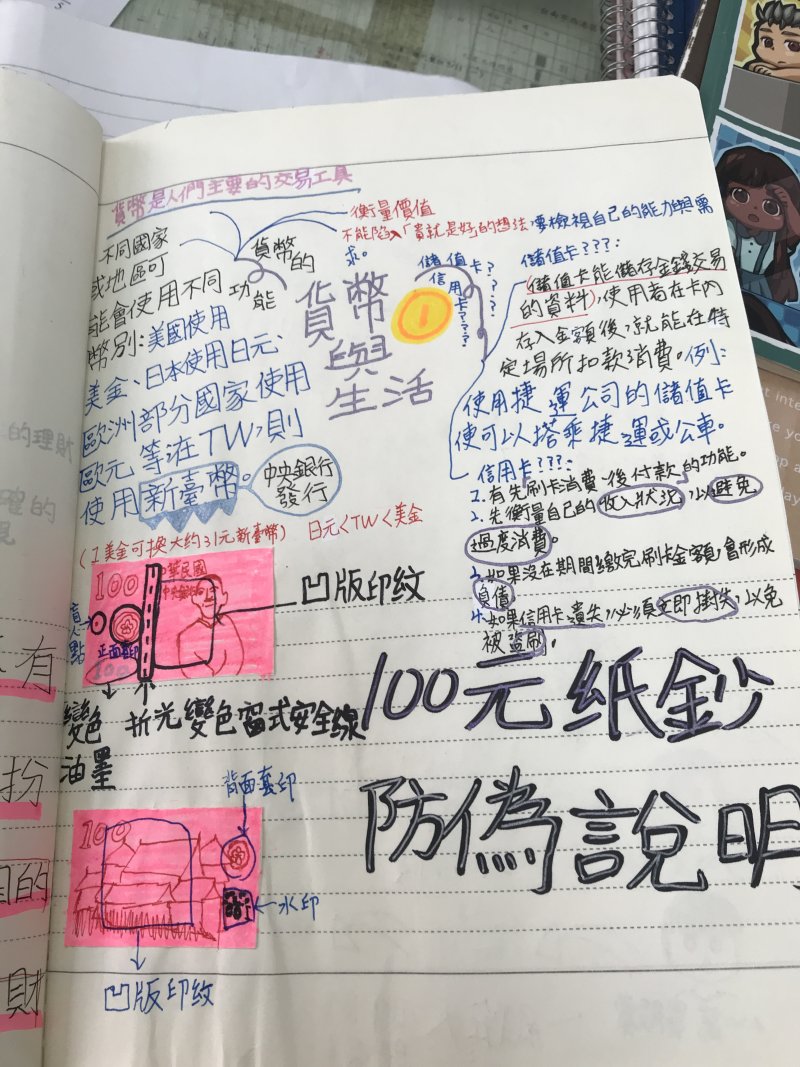 貨幣是人們主要的交易工具
衡量價值
不能陷入「貴就是好」的想法,要檢視自己的能力與需
求。
貨幣的
功能
不同國家
或地區可
能會使用不同
幣別:美國使用
美金、日本使用日元、
歐洲部分國家使用
歐元等。在TW,則
使用新臺幣。
中央銀行
發行
(1美金可換大約31元新臺幣)
日元<TW<美金
貨幣
與
生活
儲值卡????
信用卡???
儲值卡???:
(儲值卡能儲存金錢交易
的資料),使用者在卡內
存入金額後,就能在特
定場所扣款消費。例:
使用捷運公司的儲值卡
便可以搭乘捷運或公車。
信用卡???:
1.有先刷卡消費、後付款的功能。
2.先衡量自己的收入狀況,以避免
過度消費。
3.如果沒在期間繳完刷卡金額,會形成
負債
4.如果信用卡遺失,必須立即掛失,以免
被盜刷。
100
中華民國
中央銀行
盲人點
正面套印
100
凹版印紋
變色
油墨
折光變色窗式安全線
100元紙鈔
防偽說明
背面套印
100
水印
凹版印紋
的理財
確的
有
扮
的
財